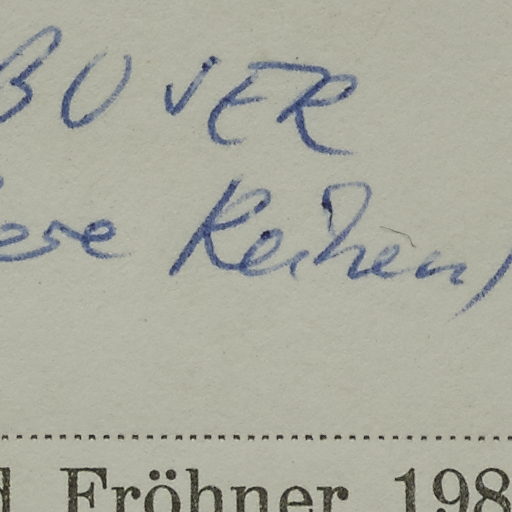 BUVER
ese Reihen)
d Fröhner 198